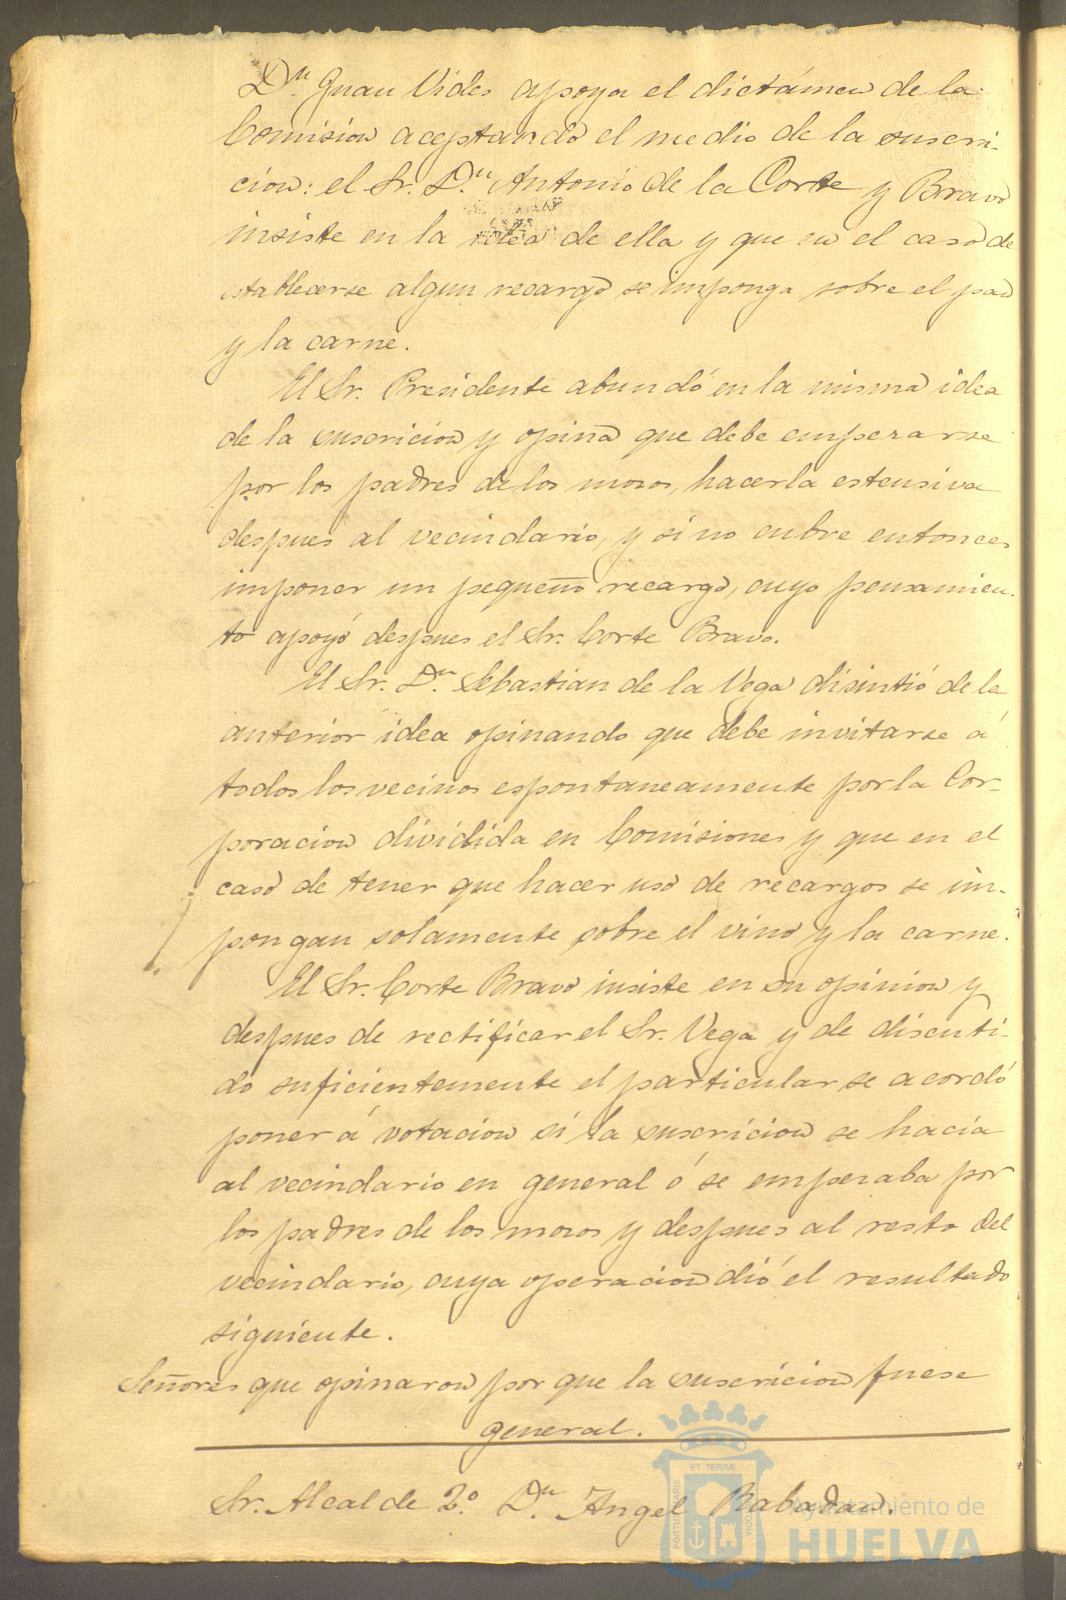 Dn. Juan Vides apoya el dictámen de la
Comision aceptando el medio de la suscri-
cion: el Sr. Dn. Antonio de la Corte y Bravo
insiste en la idea de ella y que en el caso de
establecerse algun recargo se imponga sobre el pan
y la carne.
El Sr. Presidente abundó en la misma idea
de la suscricion y opina que debe emperarse
por los padres de los mozos, hacerla estensiva
despues al vecindario, y si no cubre entonces
imponer un pequeño recargo, cuyo pensamien-
to apoyó despues el Sr. Corte Bravo.
El Sr. Dn. Sebastian de la Vega disintió de la
anterior idea opinando que debe invitarse á
todos los vecinos espontaneamente por la Cor-
poracion dividida en Comisiones y que en el
caso de tener que hacer uso de recargos se im-
pongan solamente sobre el vino y la carne.
El Sr. Corte Bravo insiste en su opinion y
despues de rectificar el Sr. Vega y de discuti-
do suficientemente el particular se acordó
poner á votacion si la suscricion se hacia
al vecindario en general ó se emperaba por
los padres de los mozos y despues al resto del
vecindario, cuya operacion dió el resultado
siguiente.
Señores que opinaron por que la suscricion fuese
general.
Sr. Alcalde 2.º Dn. Angel Rabadan.
ET TERRÆ
PORTUS MARIS
CUSTODIA
Ayuntamiento de
HUELVA